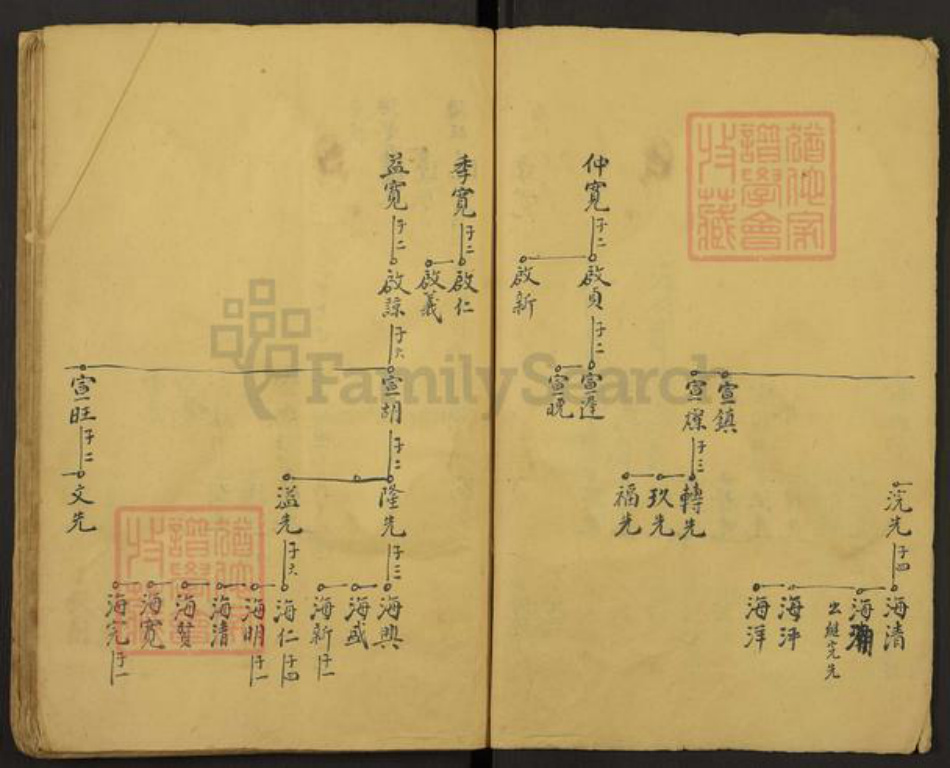 仲寬
子二
啟貞
啟新
子二
宣鎮
宣燦
宣逢
宣晚
子三
轉先
玖先
福先
浣先
子四
海清
海
出繼完先
海泙
海洋
季寬
子二
啟仁
啟義
益寬
子二
啟諒
子六
宣胡
宣旺
子二
子二
隆先
溢先
文先
子三
子六
海興
海盛
海新
子一
海仁
子四
海明
子一
海清
海贊
海寬
海完
子一
FamilySearch